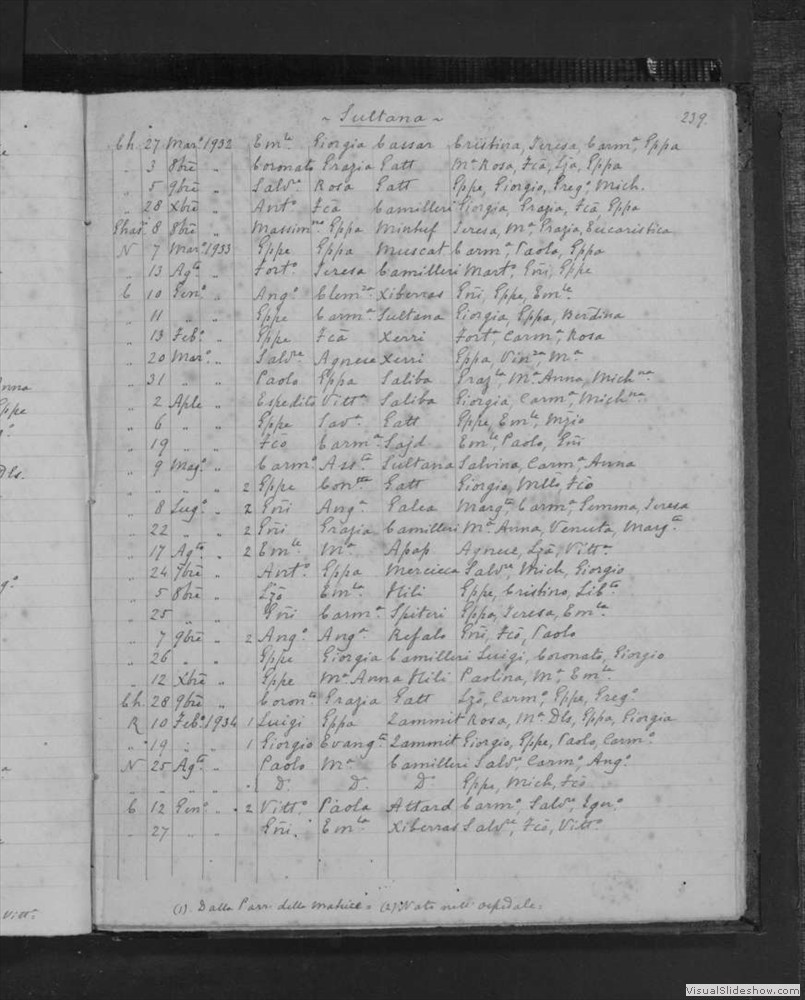 ~ Sultana ~ 239
Ch. 27 Mar.º 1932 Em.le Giorgia Cassar Cristina, Teresa, Carm.ª, Gppa
„ 3 8brē „ Coronato Grazia Gatt M.ª Rosa, Fcā, Lza, Gppa
„ 5 9brē „ Salv.re Rosa Gatt Gppe, Giorgio, Greg.º, Mich.
„ 28 Xbrē „ Ant.º Fcā Camilleri Giorgia, Grazia, Fcā, Gppa
Ghas. 8 8brē „ Massim.no Gppa Mintuf Teresa, M.ª Grazia, Eucaristica
N 7 Mar.º 1933 Gppe Gppa Muscat Carm.ª, Paola, Gppa
„ 13 Ag.to „ Fort.º Teresa Camilleri Mart.º, Gñi, Gppe
C 10 Gen.º „ Ang.º Clem.za Xiberras Gñi, Gppe, Em.le
„ 11 „ „ Gppe Carm.ª Sultana Giorgia, Gppa, Berdina
„ 13 Feb.º „ Gppe Fcā Xerri Fort.ª, Carm.ª, Rosa
„ 20 Mar.º „ Salv.re Agnese Xerri Gppa, Vin.za, M.ª
„ 31 „ „ Paolo Gppa Saliba Graz.la, M.ª Anna, Mich.na
„ 2 Aple „ Espedito Vitt.ª Saliba Giorgia, Carm.ª, Mich.na
„ 6 „ „ Gppe Sav.ª Gatt Gppe, Em.le,
„ 19 „ „ Fcō Carm.ª Sajd Em.le, Paolo, Gñi
„ 9 Mag.º „ Carm.º Ass.ta Sultana Salvina, Carm.ª, Anna
„ „ „ „ 2 Gppe Con.tta Gatt Giorgio, Fcō
„ 8 Lug.º „ 2 Gñi Ang.ª Galea Marg.ta, Carm.ª, Gemma, Teresa
„ 22 „ „ 2 Gñi Grazia Camilleri M.ª Anna, Venuta, Marg.ta
„ 17 Ag.to „ 2 Em.le M.ª Apap Agnese, Lzā, Vitt.ª
„ 24 7brē „ Ant.º Gppa Mercieca Salv.re, Mich, Giorgio
„ 5 8brē „ Lzō Em.la Hili Gppe, Cristino, Lib.ta
„ 25 „ „ Gñi Carm.ª Spiteri Gppa, Teresa, Em.la
„ 7 9brē „ 2 Ang.º Ang.ª Refalo Gñi, Fcō, Paolo
„ 26 „ „ Gppe Giorgia Camilleri Luigi, Coronato, Giorgio
„ 12 Xbrē „ Gppe M.ª Anna Hili Paolina, M.ª, Em.la
Ch. 28 9brē „ Coron.to Grazia Gatt Lzō, Carm.º, Gppe, Greg.º
R 10 Feb.º 1934 1 Luigi Gppa Zammit Rosa, M.ª Dls, Gppa, Giorgia
„ 19 „ „ 1 Giorgio Evang.ta Zammit Giorgio, Gppe, Paolo, Carm.º
N 25 Ag.to „ Paolo M.ª Camilleri Salv.re, Carm.º, Ang.º
„ „ „ „ D.º D.º D.º Gppe, Mich, Fcō
C 12 Gen.º „ 2 Vitt.º Paola Attard Carm.º, Salv.re,
„ 27 „ „ Gñi Em.la Xiberras Salv.re, Fcō, Vitt.º
(1). Dalla Parr. della Matrice. (2) Nato nell' ospedale.
Anna
Gppe
Dls.
Vitt.ª
VisualSlideshow.com